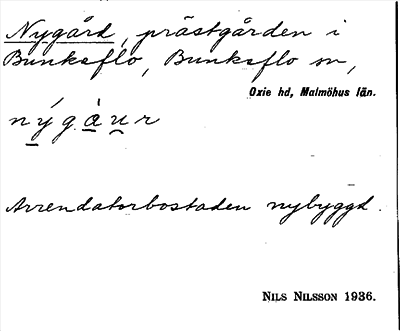 Nygård, prästgården i
Bunkeflo, Bunkeflo sn,
Oxie hd, Malmöhus län.
nýg.àu̯r
Arrendatorbostaden nybyggd.
NILS NILSSON 1936.